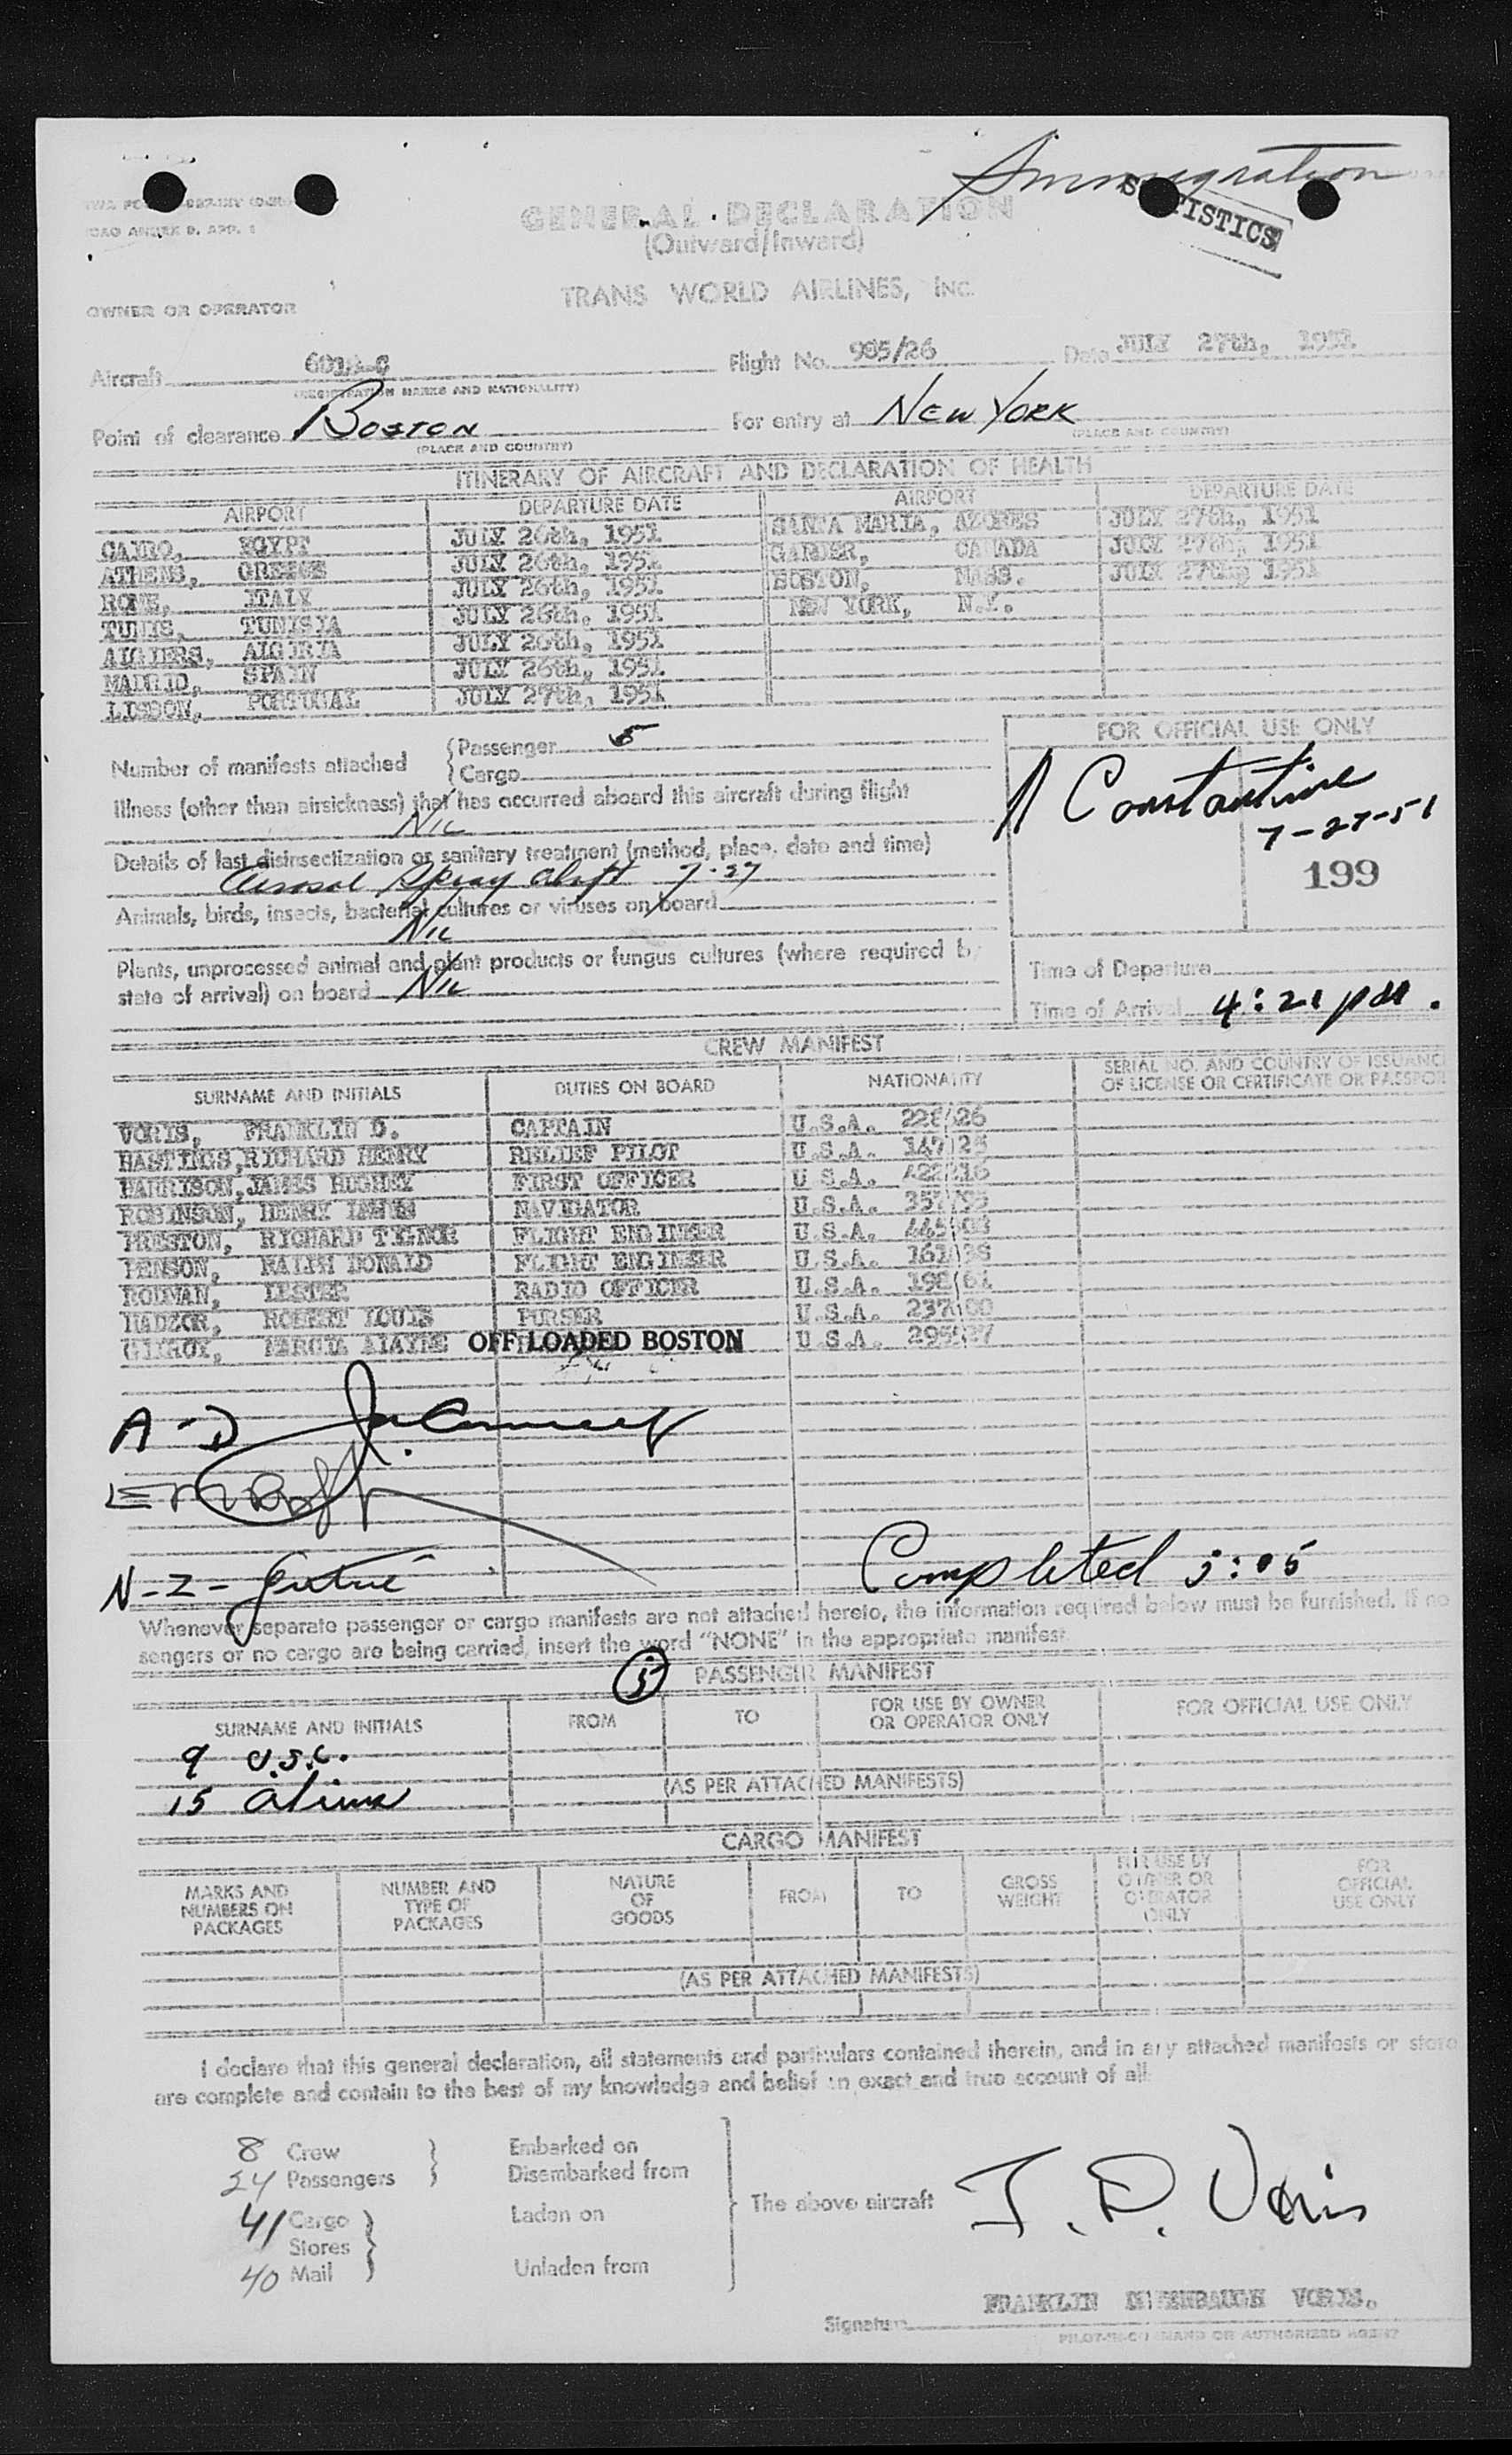 Immigration
STATISTICS
ICAO ANNEX 9, APP. 1
GENERAL DECLARATION
(Outward/Inward)
TRANS WORLD AIRLINES, INC.
OWNER OR OPERATOR
Aircraft Flight No. 985/26 Date JULY 27th, 1951
(REGISTRATION MARKS AND NATIONALITY)
Point of clearance BOSTON For entry at NEW YORK
(PLACE AND COUNTRY) (PLACE AND COUNTRY)
ITINERARY OF AIRCRAFT AND DECLARATION OF HEALTH
AIRPORT DEPARTURE DATE AIRPORT DEPARTURE DATE
CAIRO, EGYPT JULY 26th, 1951 SANTA MARIA, AZORES JULY 27th, 1951
ATHENS, GREECE JULY 26th, 1951 GANDER, CANADA JULY 27th, 1951
ROME, ITALY JULY 26th, 1951 BOSTON, MASS. JULY 27th, 1951
TUNIS, TUNISIA JULY 26th, 1951 NEW YORK, N.Y.
ALGIERS, ALGERIA JULY 26th, 1951
MADRID, SPAIN JULY 26th, 1951
LISBON, PORTUGAL JULY 27th, 1951
Number of manifests attached {Passenger 5
{Cargo
FOR OFFICIAL USE ONLY
Constantine
7-27-51
199
Illness (other than airsickness) that has occurred aboard this aircraft during flight
NIL
Details of last disinsectization or sanitary treatment (method, place, date and time)
Aerosol Spray 7-27
Animals, birds, insects, bacterial cultures or viruses on board
NIL
Plants, unprocessed animal and plant products or fungus cultures (where required by
state of arrival) on board NIL
Time of Departure
Time of Arrival 4:21 pm.
CREW MANIFEST
SURNAME AND INITIALS DUTIES ON BOARD NATIONALITY SERIAL NO. AND COUNTRY OF ISSUANCE
OF LICENSE OR CERTIFICATE OR PASSPOR
VORIS, FRANKLIN D. CAPTAIN U.S.A. 228626
HASTINGS, RICHARD HENRY RELIEF PILOT U.S.A.
HARRISON, JAMES HUGHEY FIRST OFFICER U.S.A.
ROBINSON, HENRY LEWIS NAVIGATOR U.S.A.
PRESTON, RICHARD FLIGHT ENGINEER U.S.A.
RALPH DONALD FLIGHT ENGINEER U.S.A.
LESTER RADIO OFFICER U.S.A.
HADZOR, ROBERT LOUIS PURSER U.S.A.
GILROY, MARCIA ALAYNE OFF LOADED BOSTON U.S.A.
A-D
N-Z-
Completed 5:05
Whenever separate passenger or cargo manifests are not attached hereto, the information required below must be furnished. If no
sengers or no cargo are being carried, insert the word "NONE" in the appropriate manifest.
5 PASSENGER MANIFEST
SURNAME AND INITIALS FROM TO FOR USE BY OWNER
OR OPERATOR ONLY FOR OFFICIAL USE ONLY
9 U.S.C.
(AS PER ATTACHED MANIFESTS)
15 Aliens
CARGO MANIFEST
MARKS AND
NUMBERS ON
PACKAGES NUMBER AND
TYPE OF
PACKAGES NATURE
OF
GOODS FROM TO GROSS
WEIGHT FOR USE BY
OWNER OR
OPERATOR
ONLY FOR
OFFICIAL
USE ONLY
(AS PER ATTACHED MANIFESTS)
I declare that this general declaration, all statements and particulars contained therein, and in any attached manifests or store
are complete and contain to the best of my knowledge and belief an exact and true account of all
8 Crew } Embarked on
24 Passengers } Disembarked from
41 Cargo } Laden on
Stores
40 Mail } Unladen from
The above aircraft
F. D. Voris
FRANKLIN DIFENBAUGH VORIS.
Signature
PILOT-IN-COMMAND OR AUTHORIZED AGENT